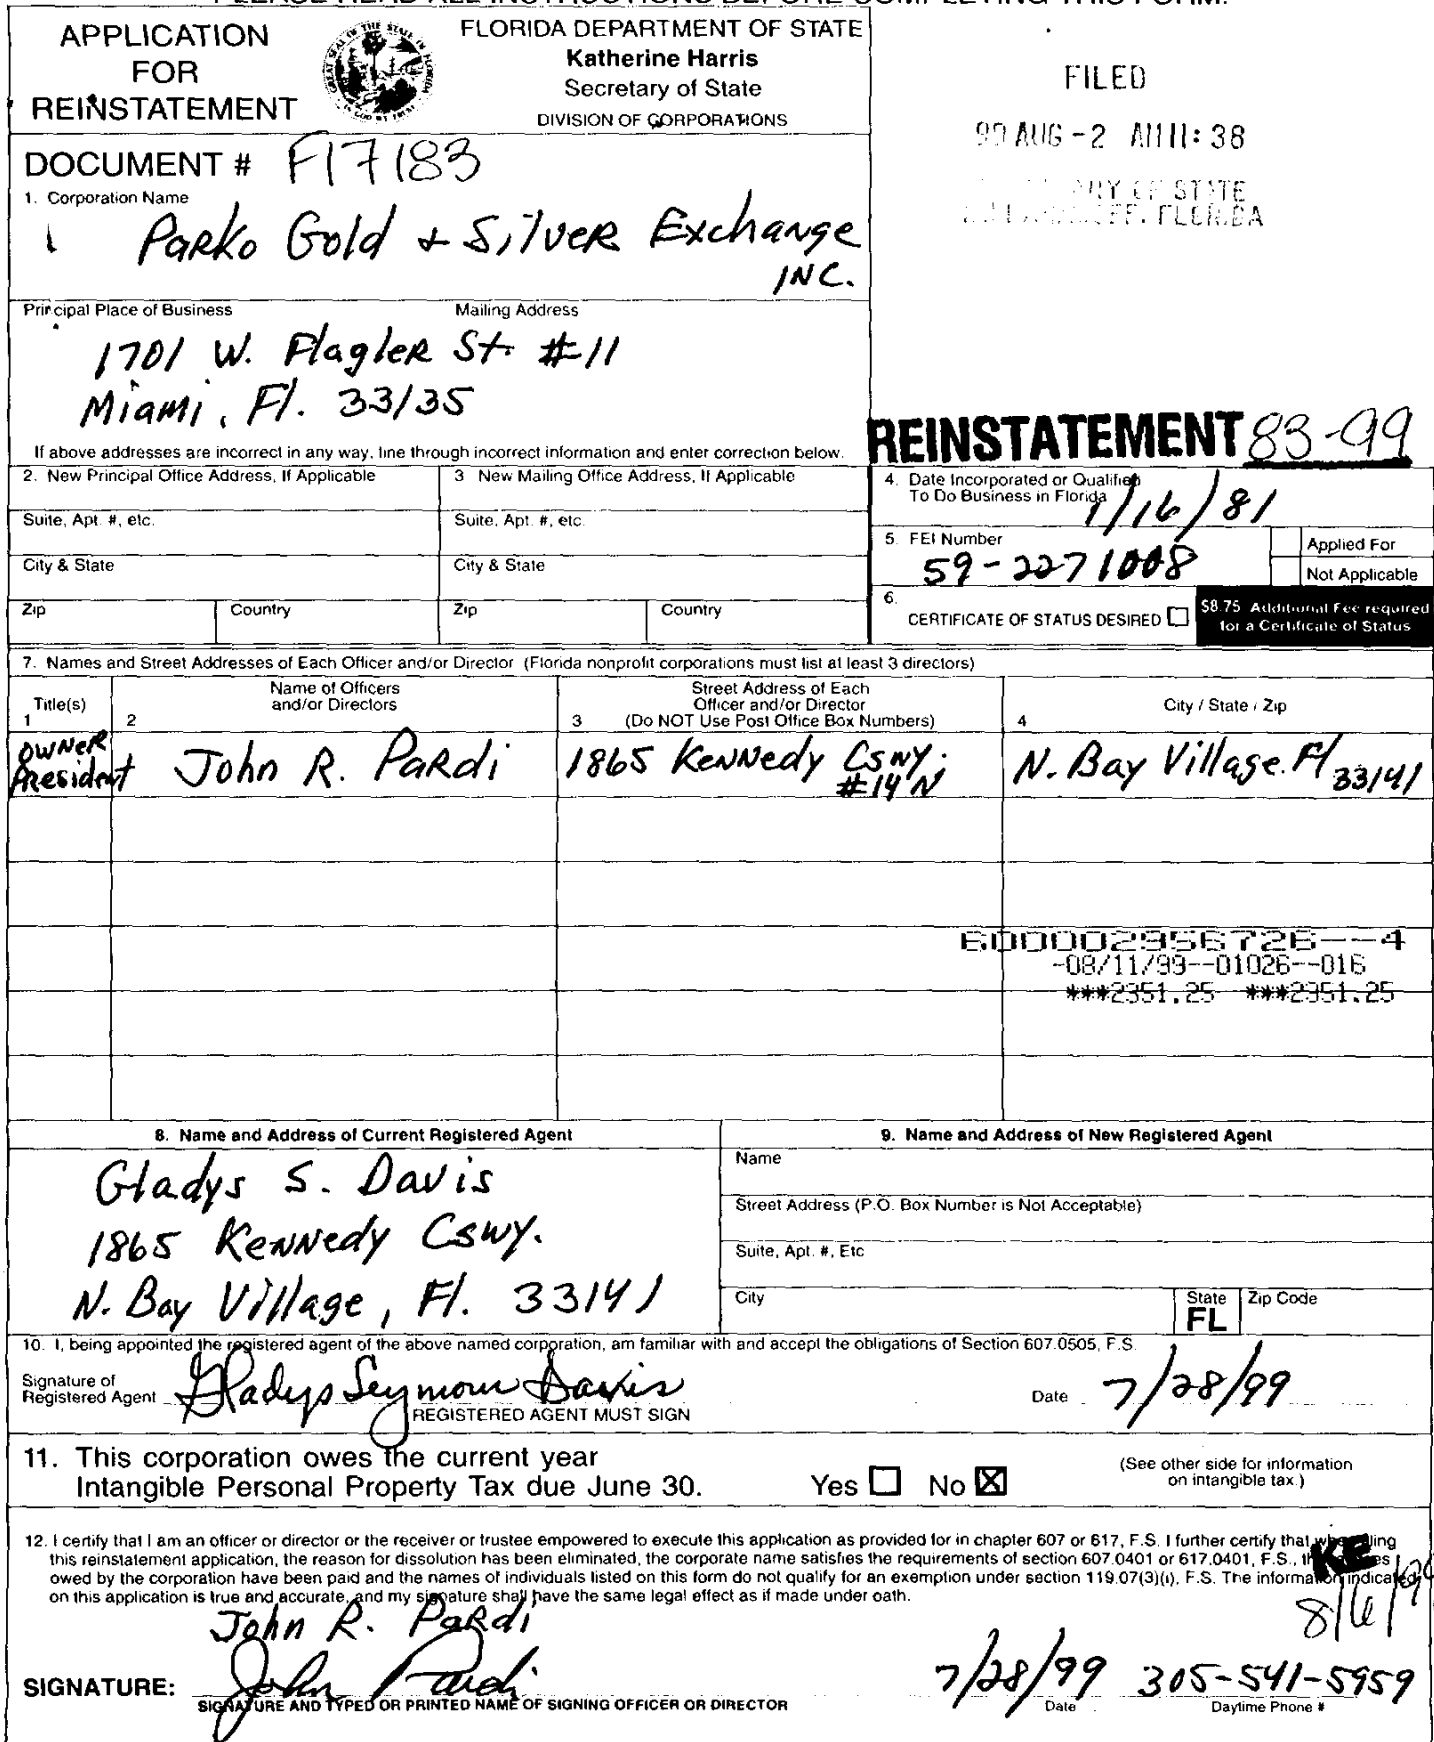 PLEASE READ ALL INSTRUCTIONS BEFORE COMPLETING THIS FORM.
APPLICATION
FOR
REINSTATEMENT
FLORIDA DEPARTMENT OF STATE
Katherine Harris
Secretary of State
DIVISION OF CORPORATIONS
FILED
99 AUG -2 AM 11: 38
OF STATE
FLORIDA
DOCUMENT # F17183
1. Corporation Name
Parko Gold + Silver Exchange
INC.
Principal Place of Business
Mailing Address
1701 W. Flagler St. #11
Miami, Fl. 33135
If above addresses are incorrect in any way, line through incorrect information and enter correction below.
REINSTATEMENT 83-99
2. New Principal Office Address, If Applicable
3 New Mailing Office Address, If Applicable
4. Date Incorporated or Qualified
To Do Business in Florida
1/16/81
Suite, Apt. #, etc.
Suite, Apt. #, etc.
5. FEI Number
59-2271008
Applied For
Not Applicable
City & State
City & State
Zip
Country
Zip
Country
6.
CERTIFICATE OF STATUS DESIRED
$8.75 Additional Fee required
for a Certificate of Status
7. Names and Street Addresses of Each Officer and/or Director (Florida nonprofit corporations must list at least 3 directors)
Title(s)
1
Name of Officers
and/or Directors
2
Street Address of Each
Officer and/or Director
3 (Do NOT Use Post Office Box Numbers)
City / State / Zip
4
OWNER
President
John R. Pardi
1865 Kennedy Cswy.
#14N
N. Bay Village. Fl 33141
6000002956726--4
-08/11/99--01026--016
***2351.25 ***2351.25
8. Name and Address of Current Registered Agent
9. Name and Address of New Registered Agent
Gladys S. Davis
1865 Kennedy Cswy.
N. Bay Village, Fl. 33141
Name
Street Address (P.O. Box Number is Not Acceptable)
Suite, Apt. #, Etc
City
State
FL
Zip Code
10. I, being appointed the registered agent of the above named corporation, am familiar with and accept the obligations of Section 607.0505, F.S.
Signature of
Registered Agent
Gladys Seymour Davis
REGISTERED AGENT MUST SIGN
Date 7/28/99
11. This corporation owes the current year
Intangible Personal Property Tax due June 30.
Yes
No
(See other side for information
on intangible tax.)
12. I certify that I am an officer or director or the receiver or trustee empowered to execute this application as provided for in chapter 607 or 617, F.S. I further certify that when filing
this reinstatement application, the reason for dissolution has been eliminated, the corporate name satisfies the requirements of section 607.0401 or 617.0401, F.S.,
owed by the corporation have been paid and the names of individuals listed on this form do not qualify for an exemption under section 119.07(3)(i), F.S. The information indicated
on this application is true and accurate, and my signature shall have the same legal effect as if made under oath.
KE
8/6/99
John R. Pardi
SIGNATURE: John Pardi
SIGNATURE AND TYPED OR PRINTED NAME OF SIGNING OFFICER OR DIRECTOR
7/28/99
Date
305-541-5959
Daytime Phone #